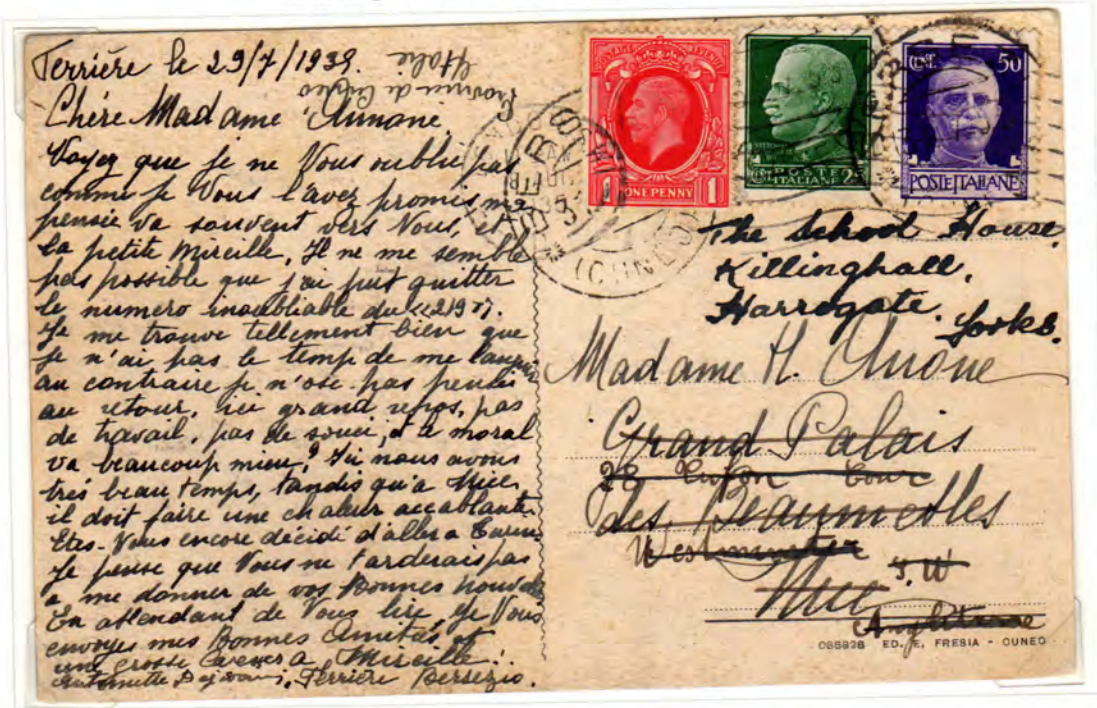 Ferrière le 29/7/1939.
Italie
Province de Cuneo
Chère Madame Aimone
Voyez que je ne Vous oublie pas
comme je Vous l'avez promis ma
pensée va souvent vers Vous, et
la petite Mireille, Il ne me semble
pas possible que j'ai put quitter
le numero inoubliable du "219".
Je me trouve tellement bien que
je n'ai pas le temp de me
au contraire je n'ose pas penser
au retour, ici grand repos, pas
de travail, pas de souci, et
moral
va beaucoup mieu, Ici nous avons
très beau temps, tandis qu'a Nice
il doit faire une chaleur accablante
Etes-Vous encore décidé d'aller a Turin
Je pense que Vous ne tarderais pas
a me donner de vos Bonnes
En attendant de Vous lire, Je Vous
envoyes mes Bonnes Amitiés et
une grosse a Mireille.
Antoinette Ferrière Bersezio.
POSTAGE REVENUE
ONE PENNY 1
POSTE
ITALIANE
CENT. 50
POSTE ITALIANE
(CUNEO)
The School House,
Killinghall,
Harrogate. Yorks.
Madame H. Aimone
Grand Palais
28 Tufton Court
des Beaumettes
Westminster
S.W
Nice
Angleterre
ED. E. FRESIA - CUNEO